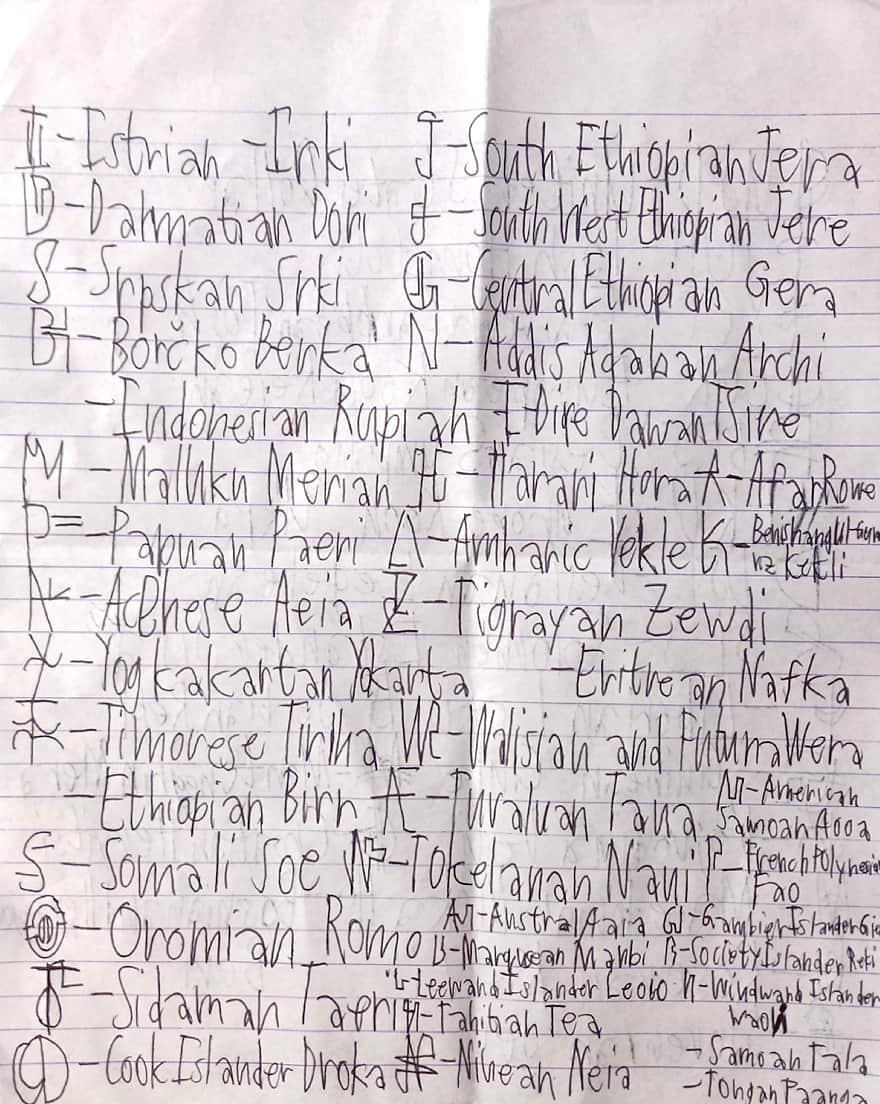 I-Istrian-Inki J-South Ethiopian Jera
D-Darmatian Dori J-South West Ethiopian Jere
S-Srpskan Srki G-Central Ethiopian Gera
B-Borčko Berka N-Addis Adaban Archi
-Indonesian Rupiah I-Dire Dawan Sire
M-Maluku Merian H-Harari Hora A-Afar Rowe
P=-Papuan Paeri A-Amharic Yekle K-Benishangul-Gumuz Kekli
A-Acehese Aeia Z-Tigrayan Zewdi
Y-Yogkakartan Yokarta -Eritrean Nafka
T-Timorese Tirtha W-Walisian and Futuna Wera
-Ethiopian Birr T-Tuvaluan Tana A-American Samoan Aooa
S-Somali Soe N-Tokelanan Nani P-French Polynesia Fao
O-Oromian Romo A-Austral Aaia G-Gambier Islander Gia
B-Marquesan Manbi R-Society Islander Reti
-Sidaman Taeri L-Leeward Islander Leoio n-Windward Islander
-Tahitian Tea Waoii
-Cook Islander Droka N-Niuean Neia -Samoan Tala
-Tongan Paanga